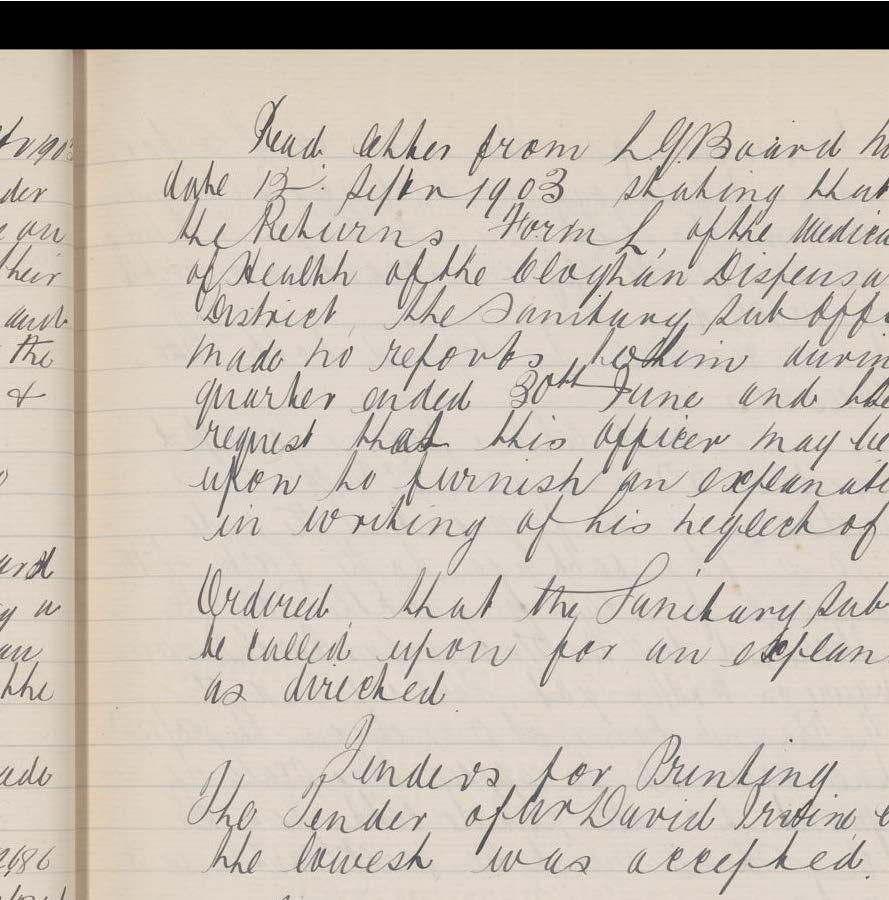 190
der
on
their
and
the
&
ard
an
the
2686
Read letter from LGBoard
date 12. Septr 1903 stating that
the Returns Form L, of the Medica
of Health of the Cloghan Dispensa
District, the Sanitary Sub Offi
made no reports to him durin
quarter ended 30th June and
request that this officer may be
upon to furnish an explanati
in writing of his neglect of
Ordered that the Sanitary Sub
be called upon for an explan
as directed
Tenders for Printing
The Tender of Mr David Irvine
the lowest was accepted.